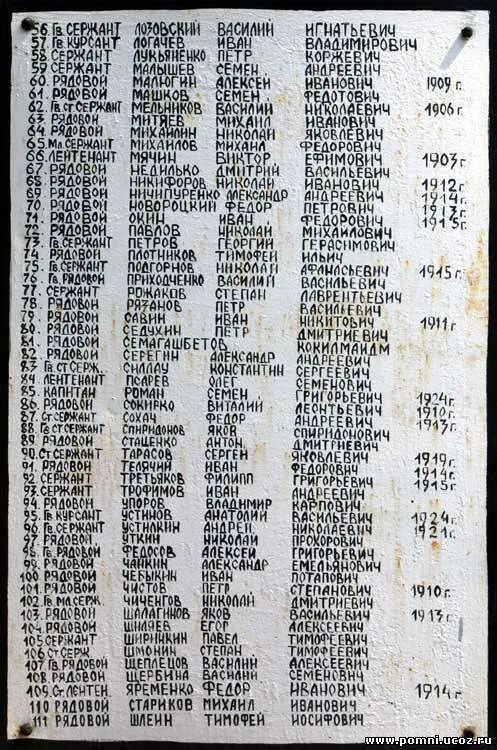 56. Гв. СЕРЖАНТ ЛОЗОВСКИЙ ВАСИЛИЙ ИГНАТЬЕВИЧ
57. Гв. КУРСАНТ ЛОГАЧЕВ ИВАН ВЛАДИМИРОВИЧ
58. СЕРЖАНТ ЛУКЬЯНЕНКО ПЕТР КОРЖЕВИЧ
59. СЕРЖАНТ МАЛЫШЕВ СЕМЕН АНДРЕЕВИЧ
60. РЯДОВОЙ МАЛОВ АЛЕКСЕЙ ИВАНОВИЧ 1909 г.
61. РЯДОВОЙ МАШКОВ СЕМЕН ФЕДОТОВИЧ
62. Гв. СТ СЕРЖАНТ МЕЛЬНИКОВ ВАСИЛИЙ НИКОЛАЕВИЧ 1906 г.
63. РЯДОВОЙ МИТЯЕВ МИХАИЛ ИВАНОВИЧ
64. РЯДОВОЙ МИХАЙЛИН НИКОЛАЙ ЯКОВЛЕВИЧ
65. Мл. СЕРЖАНТ МИХАЙЛОВ МИХАИЛ ФЕДОРОВИЧ
66. ЛЕЙТЕНАНТ МЯЧИН ВИКТОР ЕФИМОВИЧ 1903 г.
67. РЯДОВОЙ НЕДИЛЬКО ДМИТРИЙ ВАСИЛЬЕВИЧ
68. РЯДОВОЙ НИКИФОРОВ НИКОЛАЙ ИВАНОВИЧ 1912 г.
69. РЯДОВОЙ НИЧИПУРЕНКО АЛЕКСАНДР АНДРЕЕВИЧ 1914 г.
70. РЯДОВОЙ НОВОРОЦКИЙ ФЕДОР ПЕТРОВИЧ 1913 г.
71. РЯДОВОЙ ОКИН ИВАН ФЕДОРОВИЧ 1915 г.
72. РЯДОВОЙ ПАВЛОВ НИКОЛАЙ МИХАЙЛОВИЧ
73. Гв. СЕРЖАНТ ПЕТРОВ ГЕОРГИЙ ГЕРАСИМОВИЧ
74. РЯДОВОЙ ПЛОТНИКОВ ТИМОФЕЙ ИЛЬИЧ
75. Гв. СЕРЖАНТ ПОДГОРНОВ НИКОЛАЙ АФАНАСЬЕВИЧ 1915 г.
76. Гв. РЯДОВОЙ ПРИХОДЧЕНКО ВАСИЛИЙ ВАСИЛЬЕВИЧ
77. СЕРЖАНТ РОЖАКОВ СТЕПАН ЛАВРЕНТЬЕВИЧ
78. РЯДОВОЙ РЯЗАНОВ ПЕТР ВАСИЛЬЕВИЧ
79. РЯДОВОЙ САВИН ИВАН НИКИТОВИЧ 1911 г.
80. РЯДОВОЙ СЕДУХИН ПЕТР ДМИТРИЕВИЧ
81. РЯДОВОЙ СЕМАГАШБЕТОВ КОКИЛМАИДМ
82. РЯДОВОЙ СЕРЕГИН АЛЕКСАНДР АНДРЕЕВИЧ
83. Гв СТ СЕРЖ. СИЛЛАУ КОНСТАНТИН СЕРГЕЕВИЧ
84. ЛЕЙТЕНАНТ ПСАРЕВ ОЛЕГ СЕМЕНОВИЧ
85. КАПИТАН РОМАН СЕМЕН ГРИГОРЬЕВИЧ 1924 г.
86. РЯДОВОЙ СОКИРКО ВИТАЛИЙ ЛЕОНТЬЕВИЧ 1910 г.
87. СТ СЕРЖАНТ СОХАЧ ФЕДОР АНДРЕЕВИЧ 1913 г.
88. Гв СТ СЕРЖАНТ СПИРИДОНОВ ЯКОВ СПИРИДОНОВИЧ
89. РЯДОВОЙ СТАЦЕНКО АНТОН ДМИТРИЕВИЧ
90. СТ СЕРЖАНТ ТАРАСОВ СЕРГЕЙ ЯКОВЛЕВИЧ 1919 г.
91. РЯДОВОЙ ТЕЛЯЧИЙ ИВАН ФЕДОРОВИЧ 1914 г.
92. СЕРЖАНТ ТРЕТЬЯКОВ ФИЛИПП ГРИГОРЬЕВИЧ 1915 г.
93. СЕРЖАНТ ТРОФИМОВ ИВАН АНДРЕЕВИЧ
94. РЯДОВОЙ УПОРОВ ВЛАДИМИР КАРПОВИЧ
95. Гв КУРСАНТ УСТИНОВ АНАТОЛИЙ ВАСИЛЬЕВИЧ 1924 г.
96. Гв. СЕРЖАНТ УСТИЛКИН АНДРЕЙ НИКОЛАЕВИЧ 1921 г.
97. РЯДОВОЙ УТКИН НИКОЛАЙ ПРОХОРОВИЧ
98. Гв. РЯДОВОЙ ФЕДОСОВ АЛЕКСЕЙ ГРИГОРЬЕВИЧ
99. РЯДОВОЙ ЧАЙКИН АЛЕКСАНДР ЕМЕЛЬЯНОВИЧ
100. РЯДОВОЙ ЧЕБЫКИН ИВАН ПОТАПОВИЧ
101. РЯДОВОЙ ЧИСТОВ ПЕТР СТЕПАНОВИЧ 1910 г.
102. Гв МЛ. СЕРЖ. ЧИЧЕНГОВ НИКОЛАЙ ДМИТРИЕВИЧ
103. РЯДОВОЙ ШАЛАГИНОВ ЯКОВ ВАСИЛЬЕВИЧ 1913 г.
104. РЯДОВОЙ ШИЛЯЕВ ЕГОР АЛЕКСЕЕВИЧ
105 СЕРЖАНТ ШИРИНКИН ПАВЕЛ ТИМОФЕЕВИЧ
106 СТ СЕРЖ. ШМОНИН СТЕПАН ТИМОФЕЕВИЧ
107 Гв. РЯДОВОЙ ЩЕПЛЕЦОВ ВАСИЛИЙ АЛЕКСЕЕВИЧ
108 РЯДОВОЙ ЩЕРБИНА ВАСИЛИЙ СЕМЕНОВИЧ
109. СТ. ЛЕЙТЕН. ЯРЕМЕНКО ФЕДОР ИВАНОВИЧ 1914 г.
110 РЯДОВОЙ СТАРИКОВ МИХАИЛ ИВАНОВИЧ
111 РЯДОВОЙ ШЛЕИН ТИМОФЕЙ ИОСИФОВИЧ
www.pomni.ucoz.ru